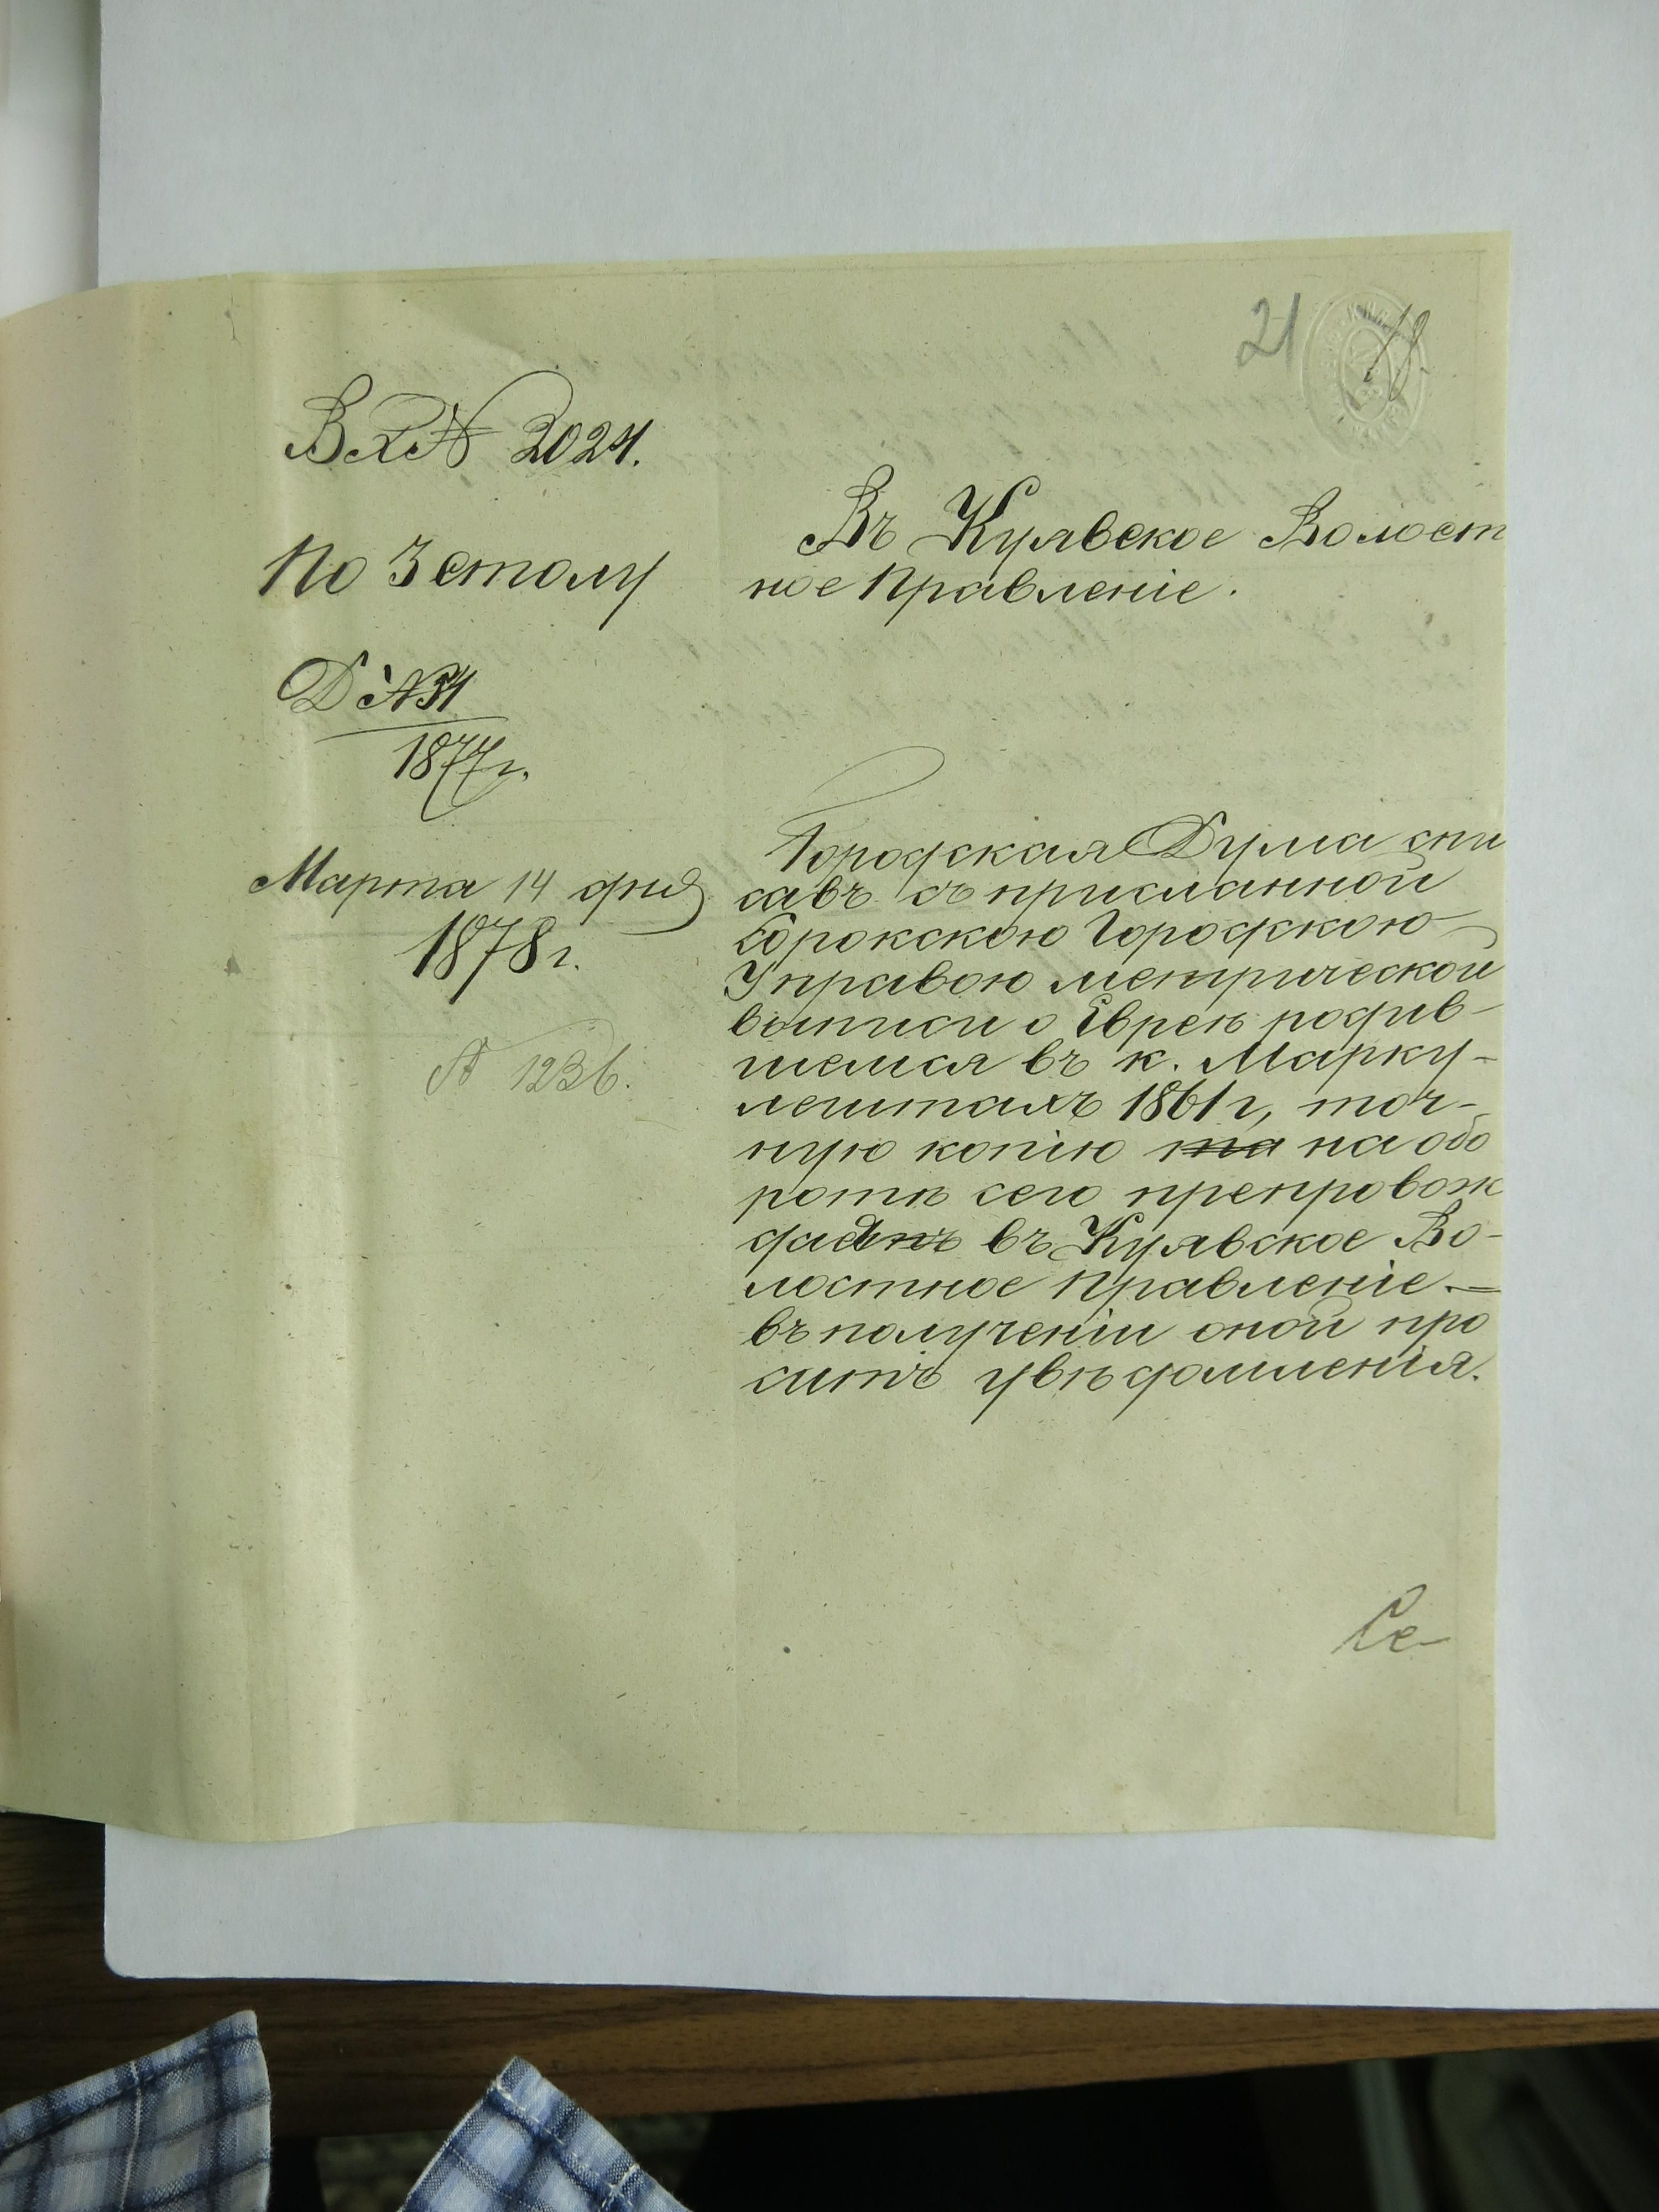 21
18
Вх № 2024.
По 3 столу
Д № 31
1877 г.
Марта 14 дня
1878 г.
№ 1236.
Въ Куявское Волост
ное Правленіе.
Городская Дума спи
савъ съ присланной
Сорокскою Городскою
Управою метрической
выписи о Евреѣ родив-
шемся въ к. Марку-
лештахъ 1861 г, точ-
ную копію на обо
ротѣ сего препровож
даетъ въ Куявское Во-
лостное Правленіе. —
въ полученіи оной про
ситъ увѣдомленія.